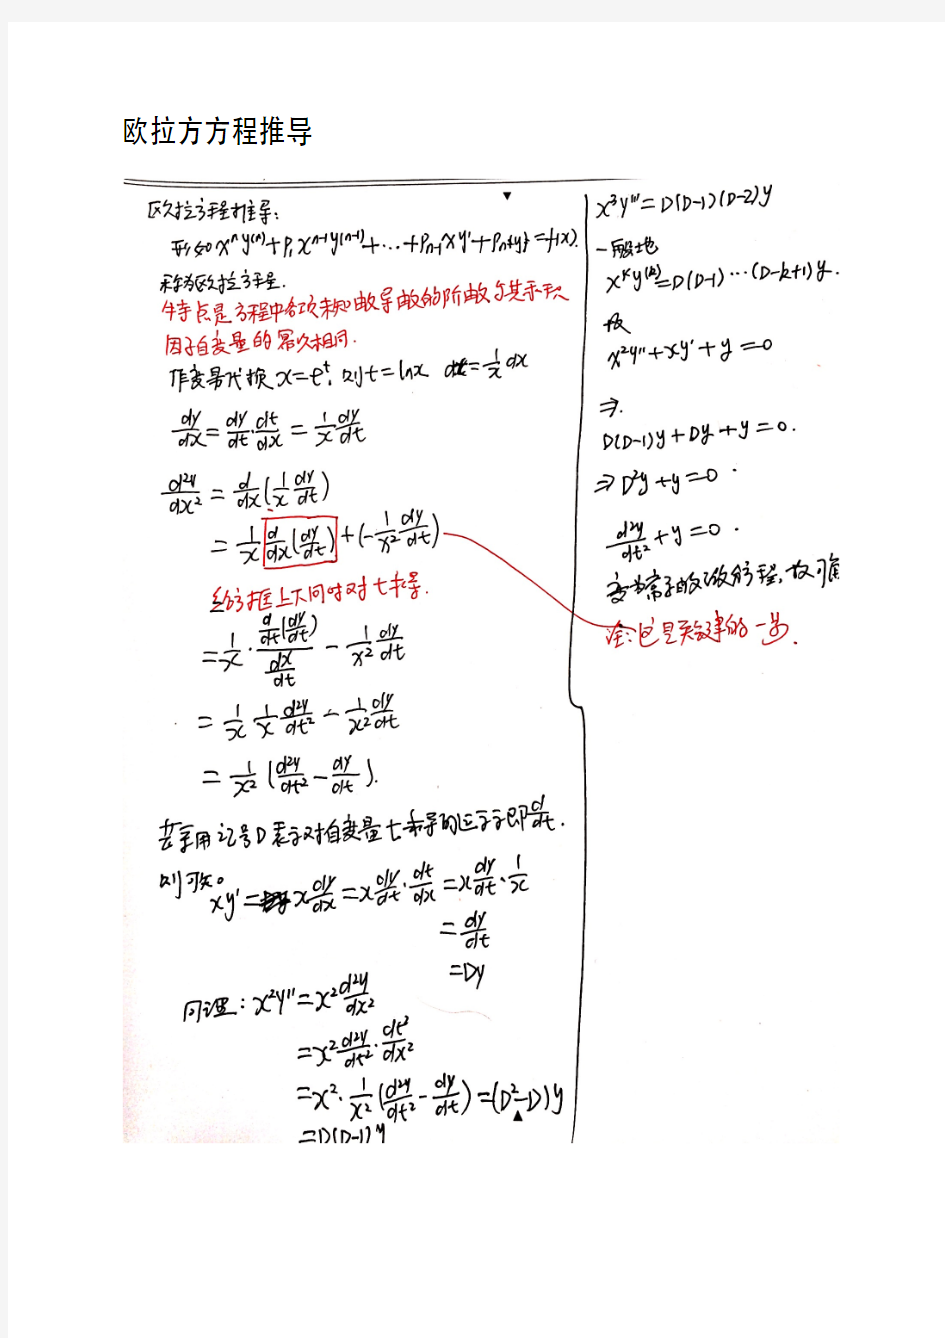 欧拉方方程推导
欧拉方程推导：
形如 xⁿy⁽ⁿ⁾+P₁xⁿ⁻¹y⁽ⁿ⁻¹⁾+…+Pₙ₋₁xy'+Pₙy=f(x).
称为欧拉方程.
特点是方程中各项未知函数导数的阶数与其乘积
因子自变量的幂次相同.
作变量代换 x=eᵗ, 则t=lnx dt=1/x dx
dy/dx=dy/dt·dt/dx=1/x dy/dt
d²y/dx²=d/dx(1/x dy/dt)
=1/x d/dx(dy/dt)+(-1/x² dy/dt)
给方框上下同时对t求导.
=1/x·(d/dt(dy/dt))/(dx/dt)-1/x² dy/dt
=1/x 1/x d²y/dt²-1/x² dy/dt
=1/x²(d²y/dt²-dy/dt).
若采用记号D表示对自变量t求导的运算子即d/dt.
则可知。
xy'=x dy/dx=x dy/dt·dt/dx=x dy/dt·1/x
=dy/dt
=Dy
同理：x²y''=x² d²y/dx²
=x² d²y/dt²·dt²/dx²
=x²·1/x²(d²y/dt²-dy/dt)=(D²-D)y
=D(D-1)y
x³y'''=D(D-1)(D-2)y
一般地
xᵏy⁽ᵏ⁾=D(D-1)…(D-k+1)y.
故
x²y''+xy'+y=0
⇒.
D(D-1)y+Dy+y=0.
⇒D²y+y=0.
d²y/dt²+y=0.
变为常系数微分方程,故可解
注:这是关键的一步.